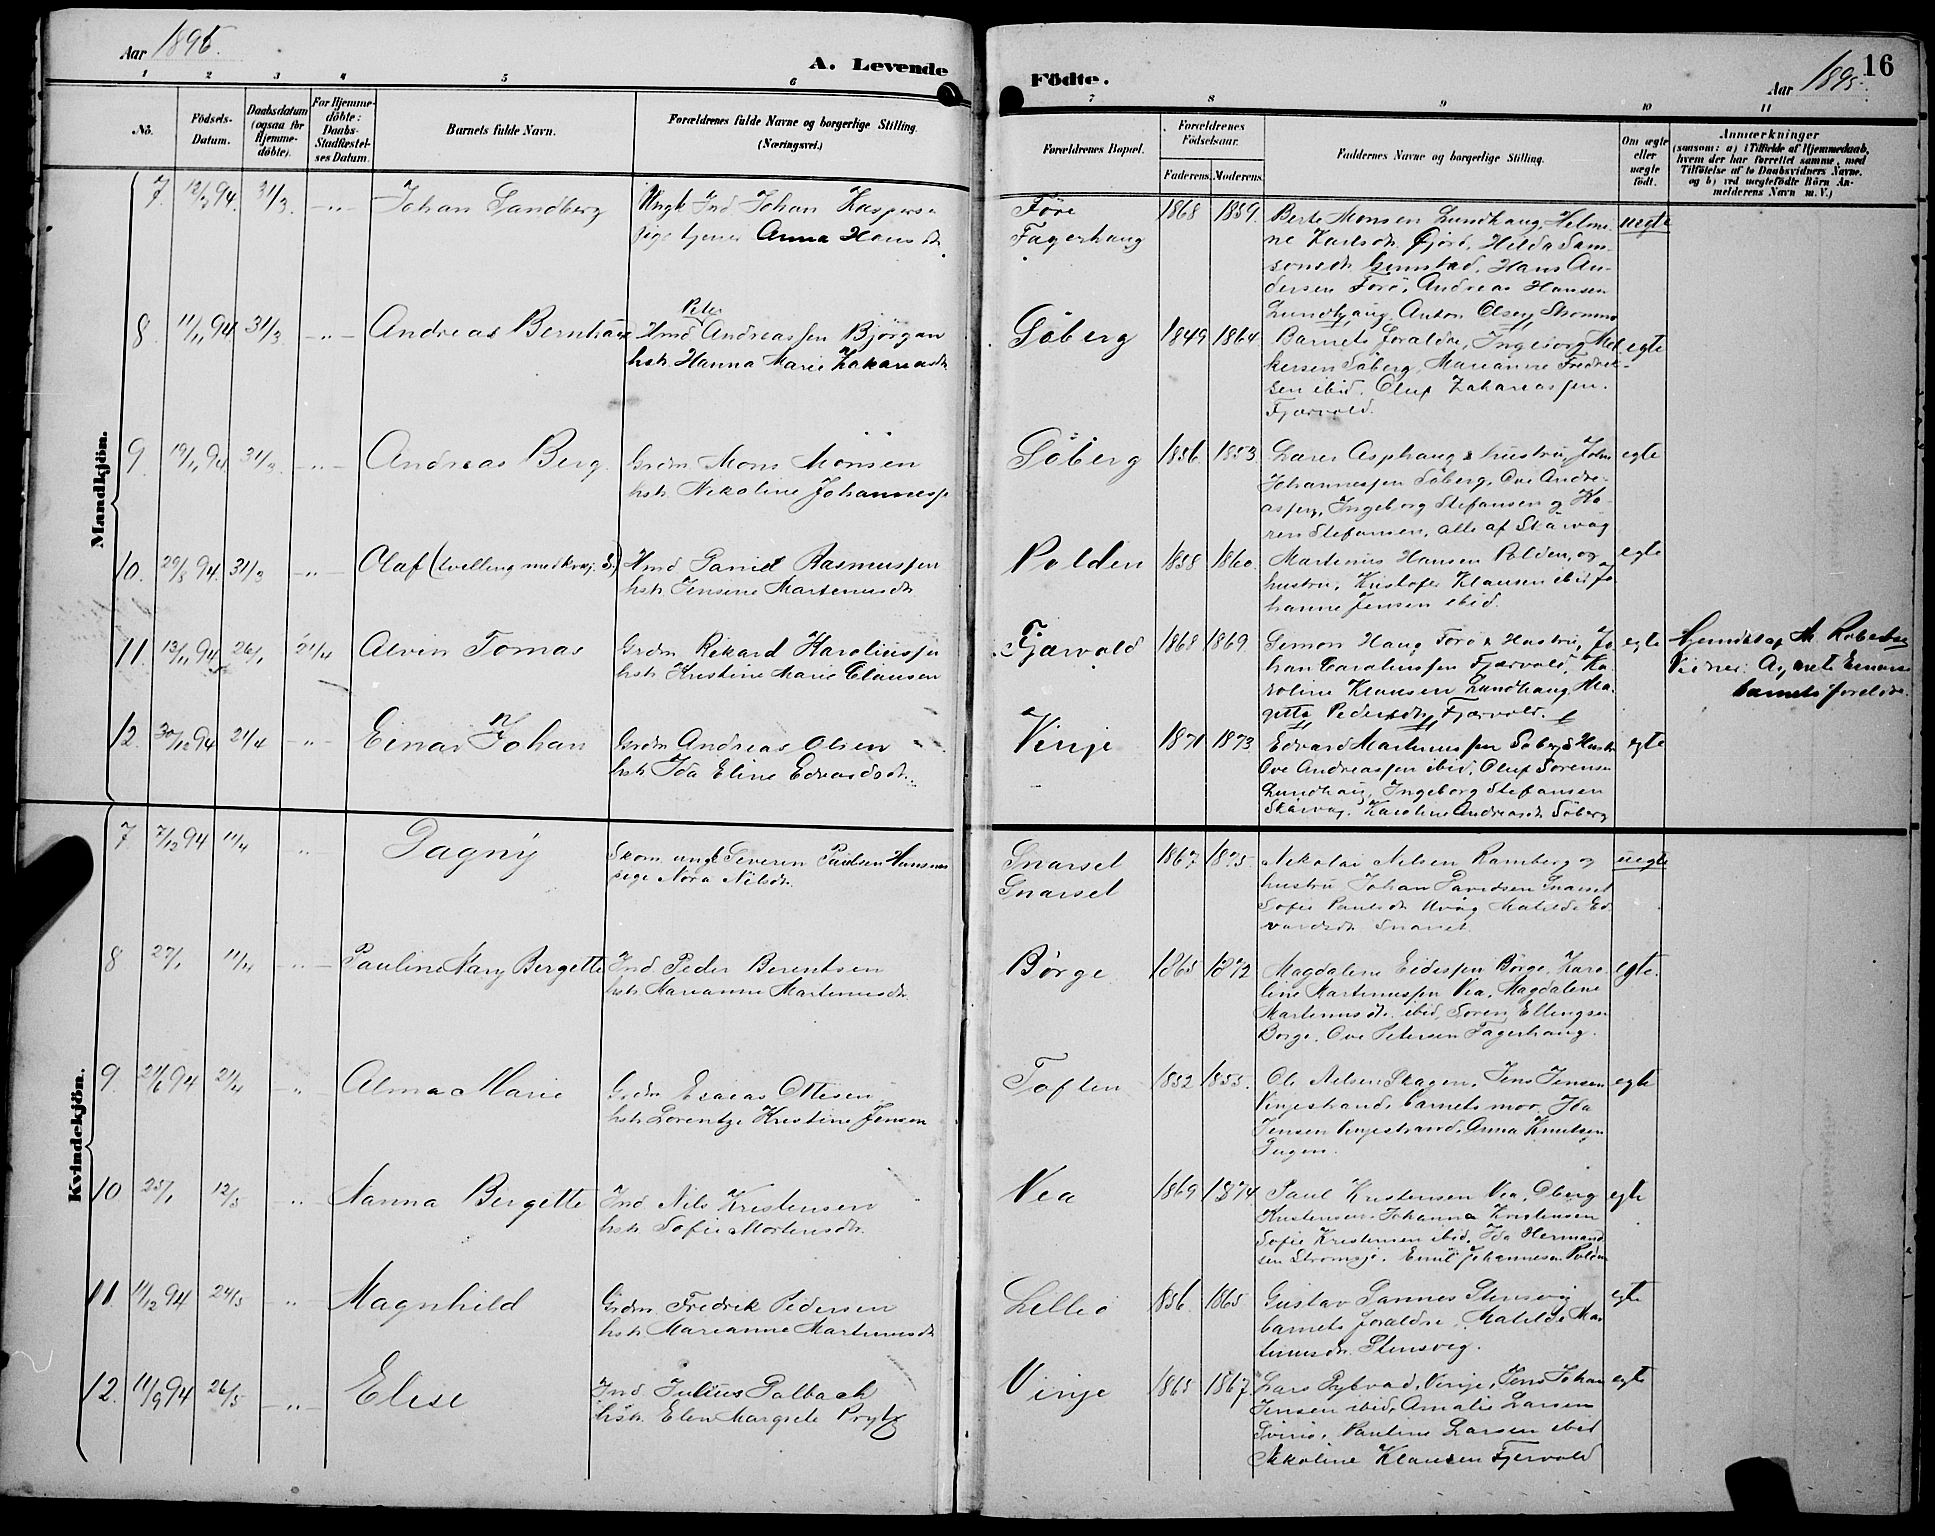 Aar 1895.
A. Levende
Födte.
Aar 1895.
16
1 2 3 4 5 6 7 8 9 10 11
No.
Födsels-
Datum.
Daabsdatum
(ogsaa for
Hjemme-
döbte).
For Hjemme-
döbte:
Daabs-
Stadfæstel-
ses Datum.
Barnets fulde Navn.
Forældrenes fulde Navne og borgerlige Stilling.
(Næringsvei.)
Forældrenes Bopæl.
Forældrenes
Födselsaar.
Faderens. Moderens.
Faddernes Navne og borgerlige Stilling.
Om ægte
eller
uægte
födt.
Anmærkninger
(saasom: a) i Tilfælde af Hjemmedaab,
hvem der har forrettet samme, med
Tilföielse af to Daabsvidners Navne,
og b) ved uægtefödte Börn An-
melderens Navn m. V.)
Mandkjön.
7. 12/3 94. 31/3. -"- Johan Sandberg
Ungk Ind Johan Kaspers
pige tjener Anna Hansdt.
Føre
Fagerhaug
1868 1859.
Berte Monsen Lundhaug, Helmi
ne Karlsdt. Gjørd, Hilda Sam-
sonsdt. Grimstad, Hans An-
dersen Førø, Andreas Hansen
Lundhaug, Anton Olsen Strømme
uegte
8. 11/11 94. 31/3. -"- Andreas Bernhard
Peter
Hmd Andreassen Bjørgan
hstr. Hanna Marie Zakariasdt
Søberg
1849 1864.
Barnets foraldre, Ingeborg Mel
kersen Søberg, Marianne Fredrik-
sen ibid. Oluf Zakariassen
Fjærvold.
egte
9. 19/11 94. 31/3. -"- Andreas Berg.
Grdm. Mons Monsen
hstr. Nikoline Johannesse
Søberg
1856. 1853.
Lærer Asphaug & hustru, John
Johannessen Søberg, Ove Andre-
assen, Ingeborg Stefansen og Ka-
ren Stefansen, alle af Skårvåg
egte
10. 29/8 94. 31/3 -"- Olaf (tvilling med kvkj. 5)
Hmd Daniel Rasmussen
hstr Jensine Martinusdt.
Polden
1858 1860.
Martinus Hansen Polden, og
hustru, Kristofer Klausen ibid Jo
hanne Jensen ibid.
egte
11. 13/11 94 26/1 21/4 Alvin Tomas
Grdm Rikard Karoliussen
hstr Kristine Marie Clausen
Fjærvold
1868 1869.
Simon Haug Førø & Hustru, Jo
han Caroliussen Fjærvold, Ka-
roline Klausen Lundhaug, Ma-
grete Pedersdt, Fjærvold.
egte
Hjemdøbt af M. Robertse
Vidner:
barnets foreldre.
12. 30/12 94 21/4 -"- Einar Johan
Grdm Andreas Olsen
hstr. Ida Eline Edvardsdt.
Vinje
1871 1873
Edvard Martinussen Søberg & Hustr
Ove Andreassen ibid, Oluf Sørensen
Lundhaug, Ingeborg Stefansen
Skårvåg, Karoline Andreasdt Søberg
egte
Kvindekjön.
7. 7/12 94 11/4 " Dagny
Skom. ungk Severin Paulsen Husmoe
pige Nora Nilsdt.
Snarset
Snarset
1867. 1875.
Nikolai Nilsen Ramberg og
hustru Johan Davidsen Snarset
Sofie Paulsdt Uvåg Matilde Ed
vardsdt Snarset
uegte
8 27/1 11/4 -"- Pauline Nary Bergette
Ind Peder Berentsen
hstr Marianne Martinusdt.
Børge
1865 1872
Magdalene Eidessen Børge, Karo
line Martinussen Vea, Magdalene
Martinusdt. ibid, Søren Ellingsen
Borge, Ove Petersen Fagerhaug.
egte.
9. 21/6 94 21/4 " Alma Marie
Grdm Esaias Ottesen
hstr. Lorentze Kristine Jensen
Toften
1852 1855.
Ole Nilsen Skagen, Jens Jensen
Vinjestrand, barnets mor, Ida
Jensen Vinjestrand, Anna Knutsen
egte
10 25/1 12/5 " Nanna Bergette
Ind. Nils Kristensen
hstr. Sofie Mortensdt.
Vea
1869 1874.
Paul Kristensen Vea, Oberg
Kristensen, Johanna Kristensen
Sofie Kristensen ibid, Ida Hermand
sen Strømsjø, Emil Johannesen Polden
egte
11. 11/12 94 24/5 -"- Magnhild
Grdm. Fredrik Pedersen
hstr. Marianne Martinusdt
Lilleø
1856. 1865.
Gustav Sannes Stensvig
barnets foraldre, Matilde Mar
tinusdt. Stensvig.
egte
12. 11/9 94 26/5 -"- Elise
Ind Julius Dalbach
hstr. Elen Margrete Prytz
Vinje
1865 1867.
Lars Rytvad, Vinje, Jens Johan
Jensen ibid, Amalie Larsen
Pauline Larsen ibid
Nikoline Klausen Fjervold
egte